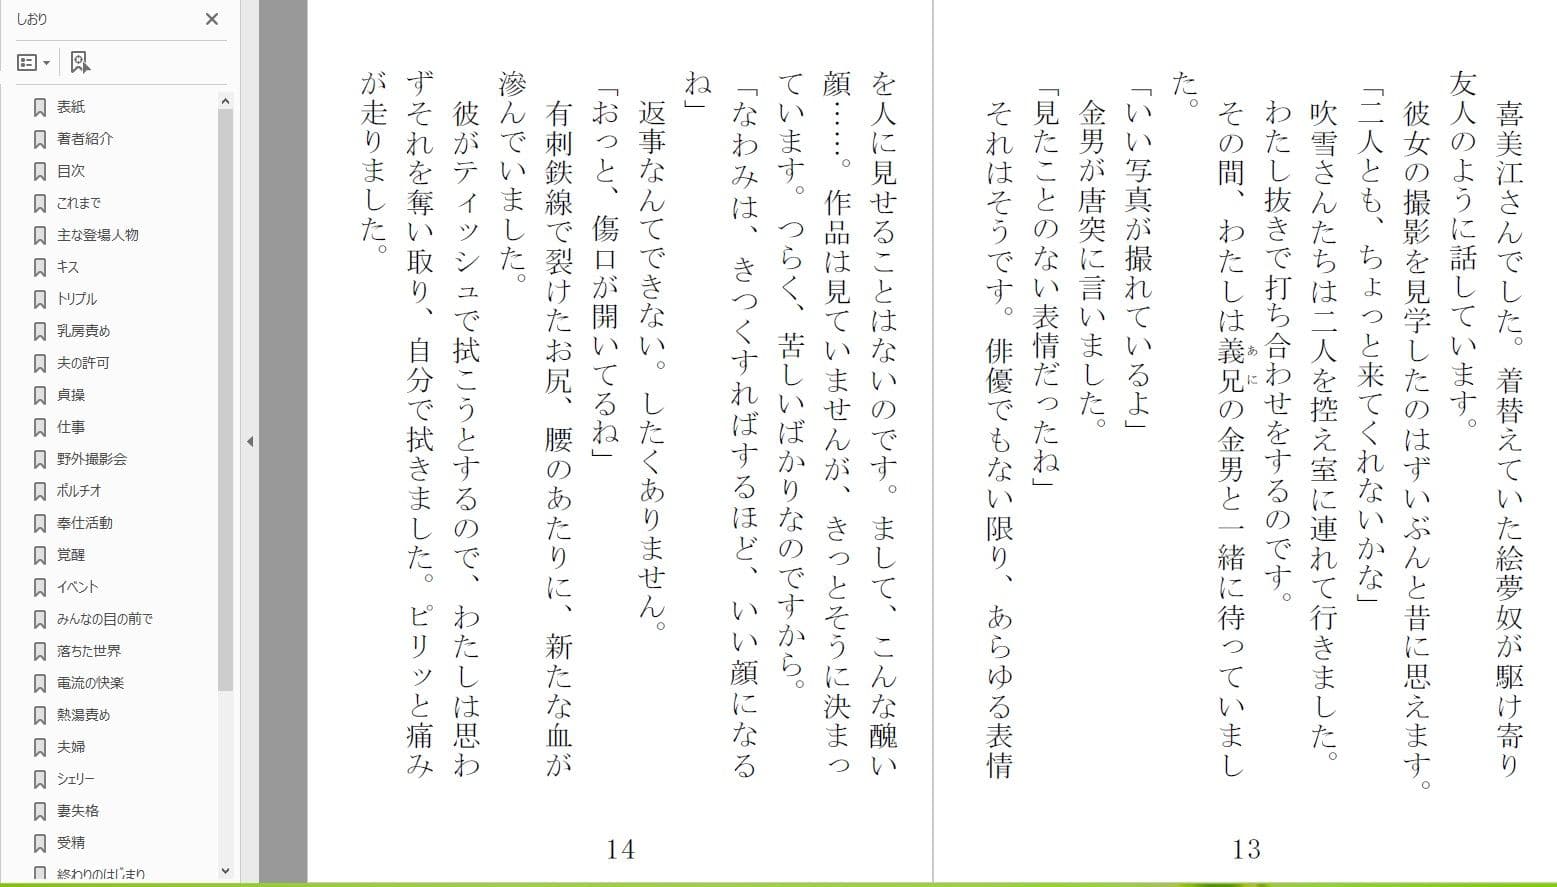 しおり
表紙
著者紹介
目次
これまで
主な登場人物
キス
トリプル
乳房責め
夫の許可
貞操
仕事
野外撮影会
ポルチオ
奉仕活動
覚醒
イベント
みんなの目の前で
落ちた世界
電流の快楽
熱湯責め
夫婦
シェリー
妻失格
受精
終わりのはじまり
喜美江さんでした。着替えていた絵夢奴が駆け寄り
友人のように話しています。
彼女の撮影を見学したのはずいぶんと昔に思えます。
「二人とも、ちょっと来てくれないかな」
吹雪さんたちは二人を控え室に連れて行きました。
わたし抜きで打ち合わせをするのです。
その間、わたしは義兄の金男と一緒に待っていまし
あに
た。
「いい写真が撮れているよ」
金男が唐突に言いました。
「見たことのない表情だったね」
それはそうです。俳優でもない限り、あらゆる表情
13
を人に見せることはないのです。まして、こんな醜い
顔……。作品は見ていませんが、きっとそうに決まっ
ています。つらく、苦しいばかりなのですから。
「なわみは、きつくすればするほど、いい顔になる
ね」
返事なんてできない。したくありません。
「おっと、傷口が開いてるね」
有刺鉄線で裂けたお尻、腰のあたりに、新たな血が
滲んでいました。
彼がティッシュで拭こうとするので、わたしは思わ
ずそれを奪い取り、自分で拭きました。ピリッと痛み
が走りました。
14